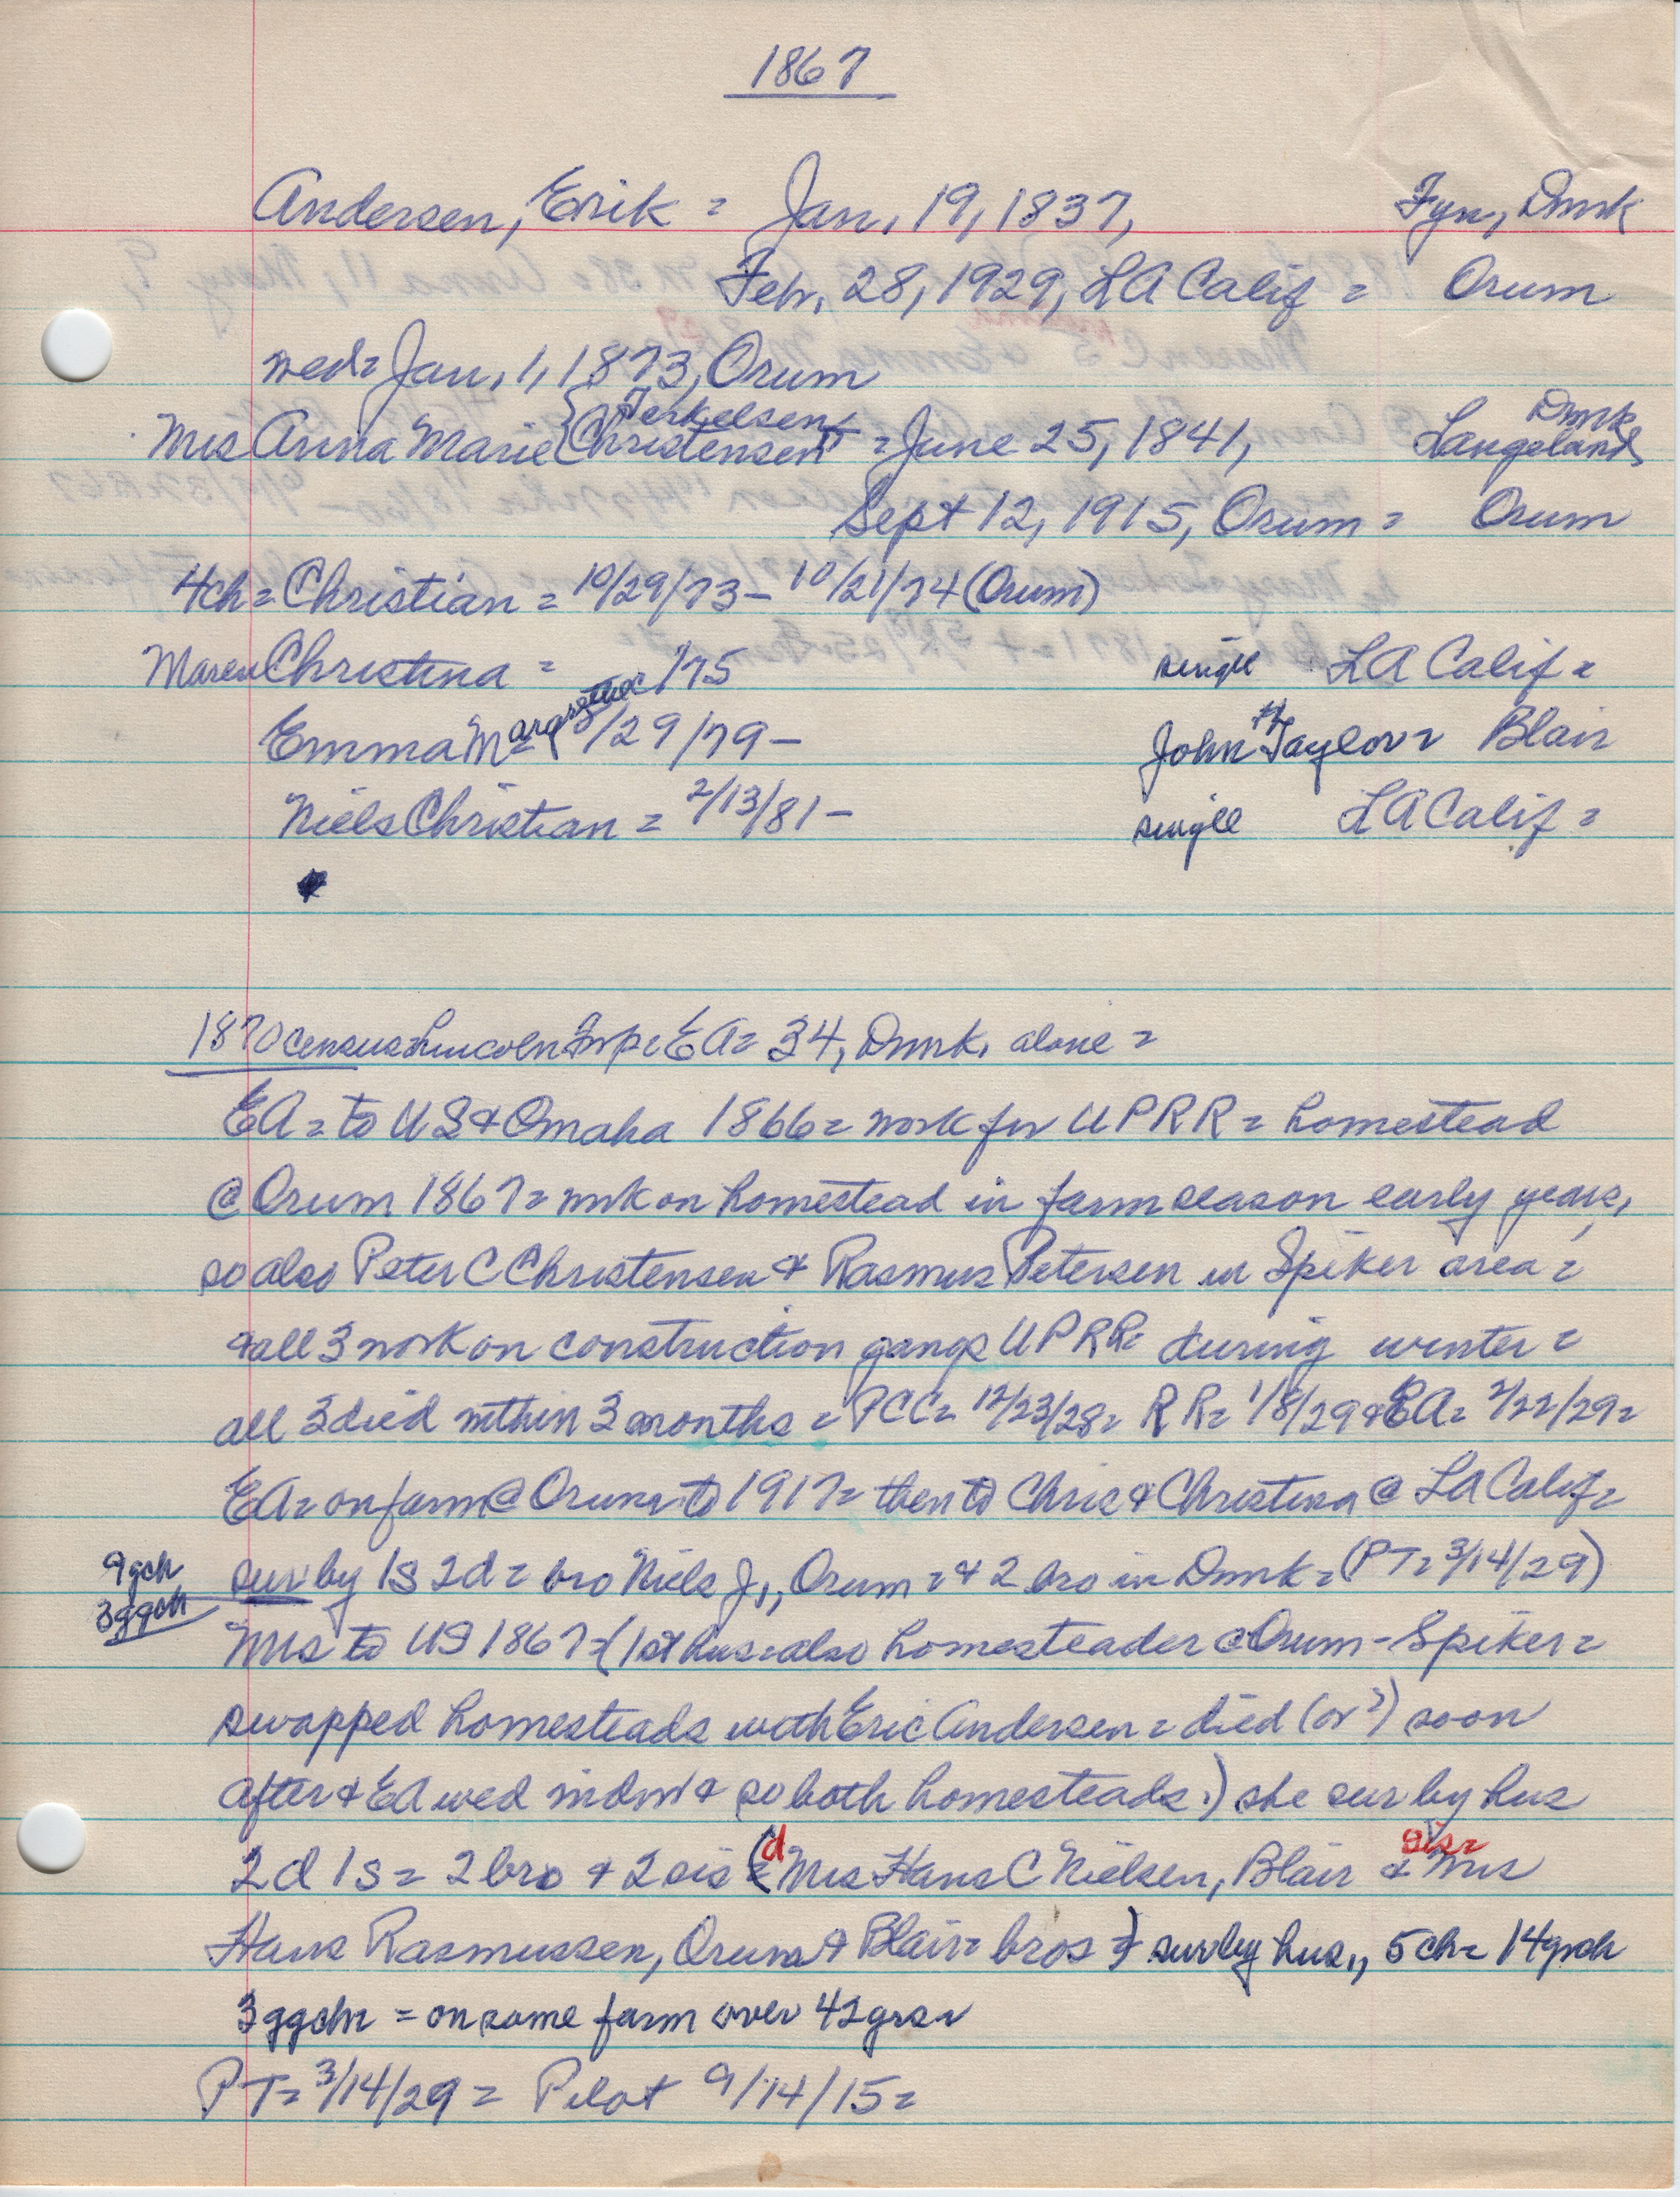 1867
Andersen, Erik = Jan, 19, 1837, Fyn, Dmk
Feb, 28, 1929, LA Calif = Orum
wed = Jan, 1, 1873, Orum
Terkelsen Dmk
Mrs Anna Marie Christensen = June 25, 1841, Langeland
Sept 12, 1915, Orum = Orum
4ch = Christian = 10/29/73 - 10/21/74 (Orum)
Maren Christina = /75 single LA Calif =
Emma Margrethe /29/79 - John H Taylor = Blair
Niels Christian = 2/13/81 - single LA Calif =
1870 census Lincoln Twp = EA = 34, Dmk, alone =
EA = to US & Omaha 1866 = work for UPRR = homestead
@ Orum 1867 = work on homestead in farm season early years,
so also Peter C Christensen & Rasmus Petersen in Spiker area =
& all 3 work on construction gangs UPRR = during winter =
all 3 died within 3 months = PCC = 12/23/28 = RR = 1/8/29 & EA = 2/22/29 =
EA = on farm @ Orum to 1917 = then to Chris & Christina @ LA Calif =
9gch sur by 1s 2d = bro Niels J,, Orum = & 2 bro in Dmk = (PT = 3/14/29)
3ggch
Mrs to US 1867 = (1st hus = also homesteader @ Orum - Spiker =
swapped homesteads with Eric Andersen = died (or ?) soon
after & EA wed widow & so both homesteads.) she sur by hus
2d 1s = 2 bro & 2 sis (d Mrs Hans C Nielsen, Blair & sis = Mrs
Hans Rasmussen, Orum & Blair = bros ) sur by hus,, 5ch = 14grch
3ggch = on same farm over 42yrs =
PT = 3/14/29 = Pilot 9/14/15 =